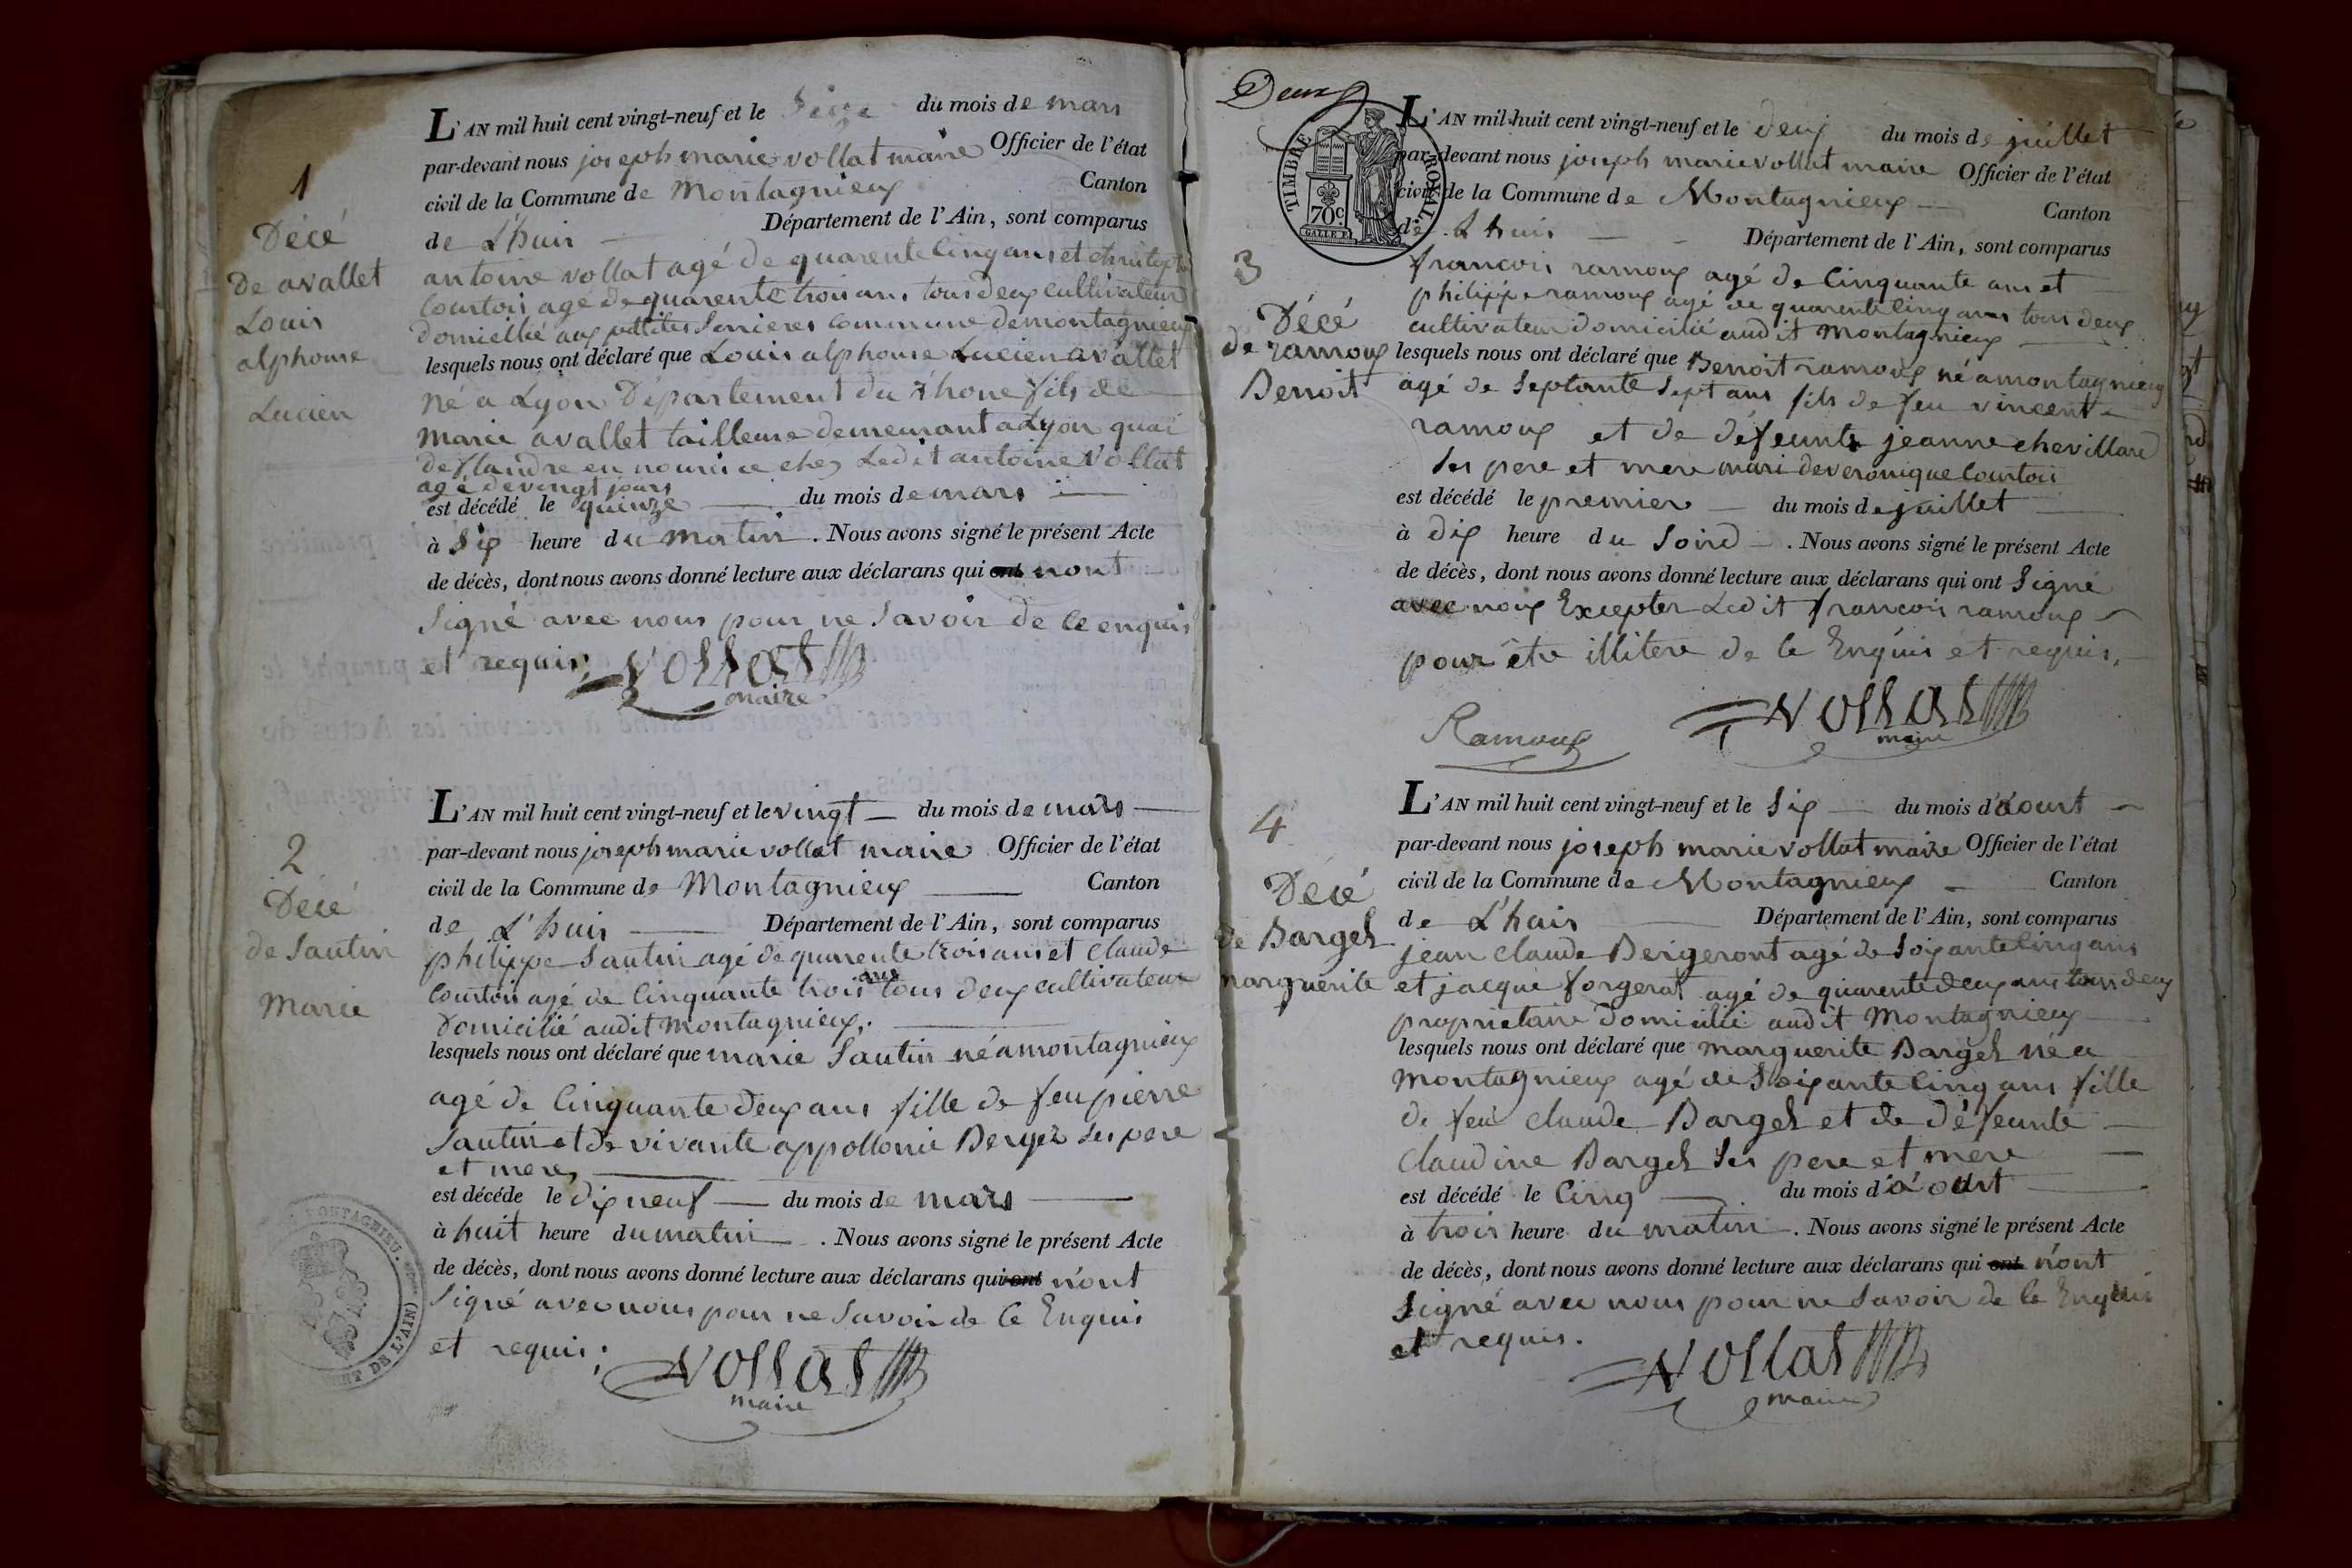 1
Décé
De avallet
Louis
alphonse
Lucien
L'AN mil huit cent vingt-neuf et le Seize du mois de mars
par-devant nous joseph marie vollat maire Officier de l'état
civil de la Commune de Montagnieux Canton
de L'huis Département de l'Ain, sont comparus
antoine vollat agé de quarente cinq ans et christophe
Courtois age de quarente trois ans tous deux cultivateur
Domicilié aux petites Serrieres commune de montagnieux
lesquels nous ont déclaré que Louis alphonse Lucien avallet
né a Lyon Département du rhone fils de
marie avallet tailleuse demeurant a Lyon quai
de flandre en nourice chez Ledit antoine Vollat
agé de vingt jours
est décédé le quinze du mois de mars
à Six heure du matin. Nous avons signé le présent Acte
de décès, dont nous avons donné lecture aux déclarans qui ont nont
Signé avec nous pour ne Savoir de ce enquis
et requis, vollat
maire
2
Décé
de Sautin
Marie
L'AN mil huit cent vingt-neuf et le vingt du mois de mars
par-devant nous joseph marie vollat maire Officier de l'état
civil de la Commune de Montagnieux Canton
de L'huis Département de l'Ain, sont comparus
philippe Sautin agé de quarente trois ans et Claude
Courtois agé de Cinquante trois ans tous deux cultivateur
Domicilié audit Montagnieux,
lesquels nous ont déclaré que marie Sautin né a montagnieux
agé de Cinquante deux ans fille de feu pierre
Sautin et de vivante appollonie Berger Ses pere
et mere,
est décédé le dix neuf du mois de mars
à huit heure du matin. Nous avons signé le présent Acte
de décès, dont nous avons donné lecture aux déclarans qui ont n'ont
Signé avec nous pour ne Savoir de Ce Enquis
et requis; vollat
maire
MONTAGNIEU.
DE L'AIN)
Deux
TIMBRE ROYAL
70c
L'AN mil huit cent vingt-neuf et le deux du mois de juillet
par-devant nous joseph marie vollat maire Officier de l'état
civil de la Commune de Montagnieux Canton
de L'huis Département de l'Ain, sont comparus
3
Décé
de ramoux
Benoit
francois ramoux agé de Cinquante ans et
philippe ramoux agé de quarente cinq ans tous deux
cultivateur domicilié audit Montagnieux
lesquels nous ont déclaré que Benoit ramoux né a montagnieux
agé de Septante Sept ans fils de feu vincent
ramoux et de défeunte jeanne chevillard
Ses pere et mere mari de veronique Courtois
est décédé le premier du mois de juillet
à dix heure du Soird. Nous avons signé le présent Acte
de décès, dont nous avons donné lecture aux déclarans qui ont Signé
avec nous Excepter Ledit francois ramoux
pour être illitere de Ce Enquis et requis,
vollat
maire
Ramoux
4
Décé
de Barget
marguerite
L'AN mil huit cent vingt-neuf et le Six du mois d'aoust
par-devant nous joseph marie vollat maire Officier de l'état
civil de la Commune de Montagnieux Canton
de L'huis Département de l'Ain, sont comparus
jean Claude Berigeront agé de Soixante cinq ans
et jacque forgerat agé de quarente deux ans tous deux
proprietaire Domicilié audit Montagnieux
lesquels nous ont déclaré que marguerite Barget né a
Montagnieux agé de Soixante cinq ans fille
de feu Claude Barget et de défeunte
Claudine Barget Ses pere et mere
est décédé le Cinq du mois d'août
à trois heure du matin. Nous avons signé le présent Acte
de décès, dont nous avons donné lecture aux déclarans qui ont n'ont
Signé avec nous pour ne Savoir de Ce Enquis
et requis.
vollat
maire